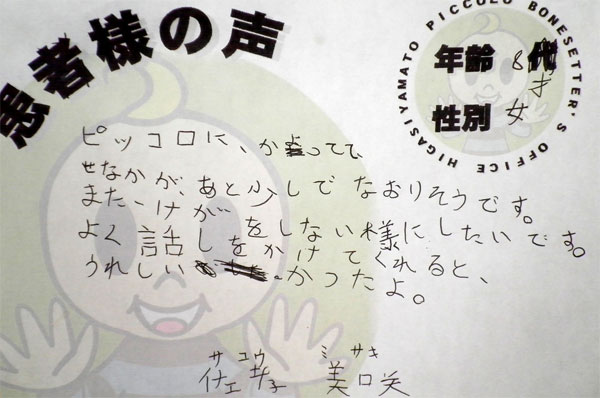 患者様の声
HIGASIYAMATO PICCOLO BONESETTER'S OFFICE
年齢 8才
性別 女
ピッコロに、かってて、
せなかが、あと少しでなおりそうです。
また、けがをしない様にしたいです。
よく話しをかけてくれると、
うれしいかったよ。
サコウ ミサキ
佐孝 美咲